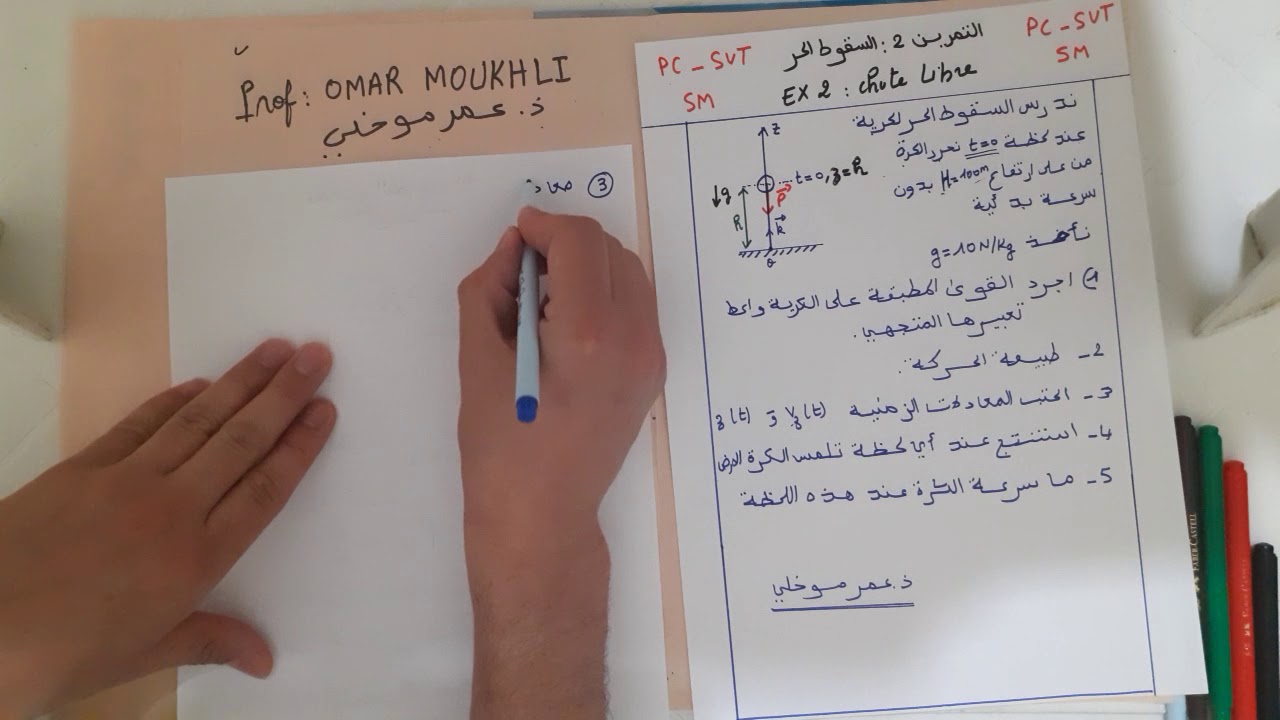 Prof: OMAR MOUKHLI
ذ. عمر موخلي
③ معاد
PC _ SVT
SM
التمرين 2 : السقوط الحر
EX 2 : Chute Libre
PC _ SVT
SM
ندرس السقوط الحر لكرية
عند لحظة t=0 نحرر الكرة
من على ارتفاع H=100m بدون
سرعة بدئية
نأخذ g=10N/Kg
z
t=0, z=h
g
P
h
k
o
1) اجرد القوى المطبقة على الكرية واعط
تعبيرها المتجهي.
2- طبيعة الحركة.
3- اكتب المعادلات الزمنية Vz(t) و z(t)
4- استنتج عند أي لحظة تلمس الكرة الارض
5- ما سرعة الكرة عند هذه اللحظة
ذ. عمر موخلي